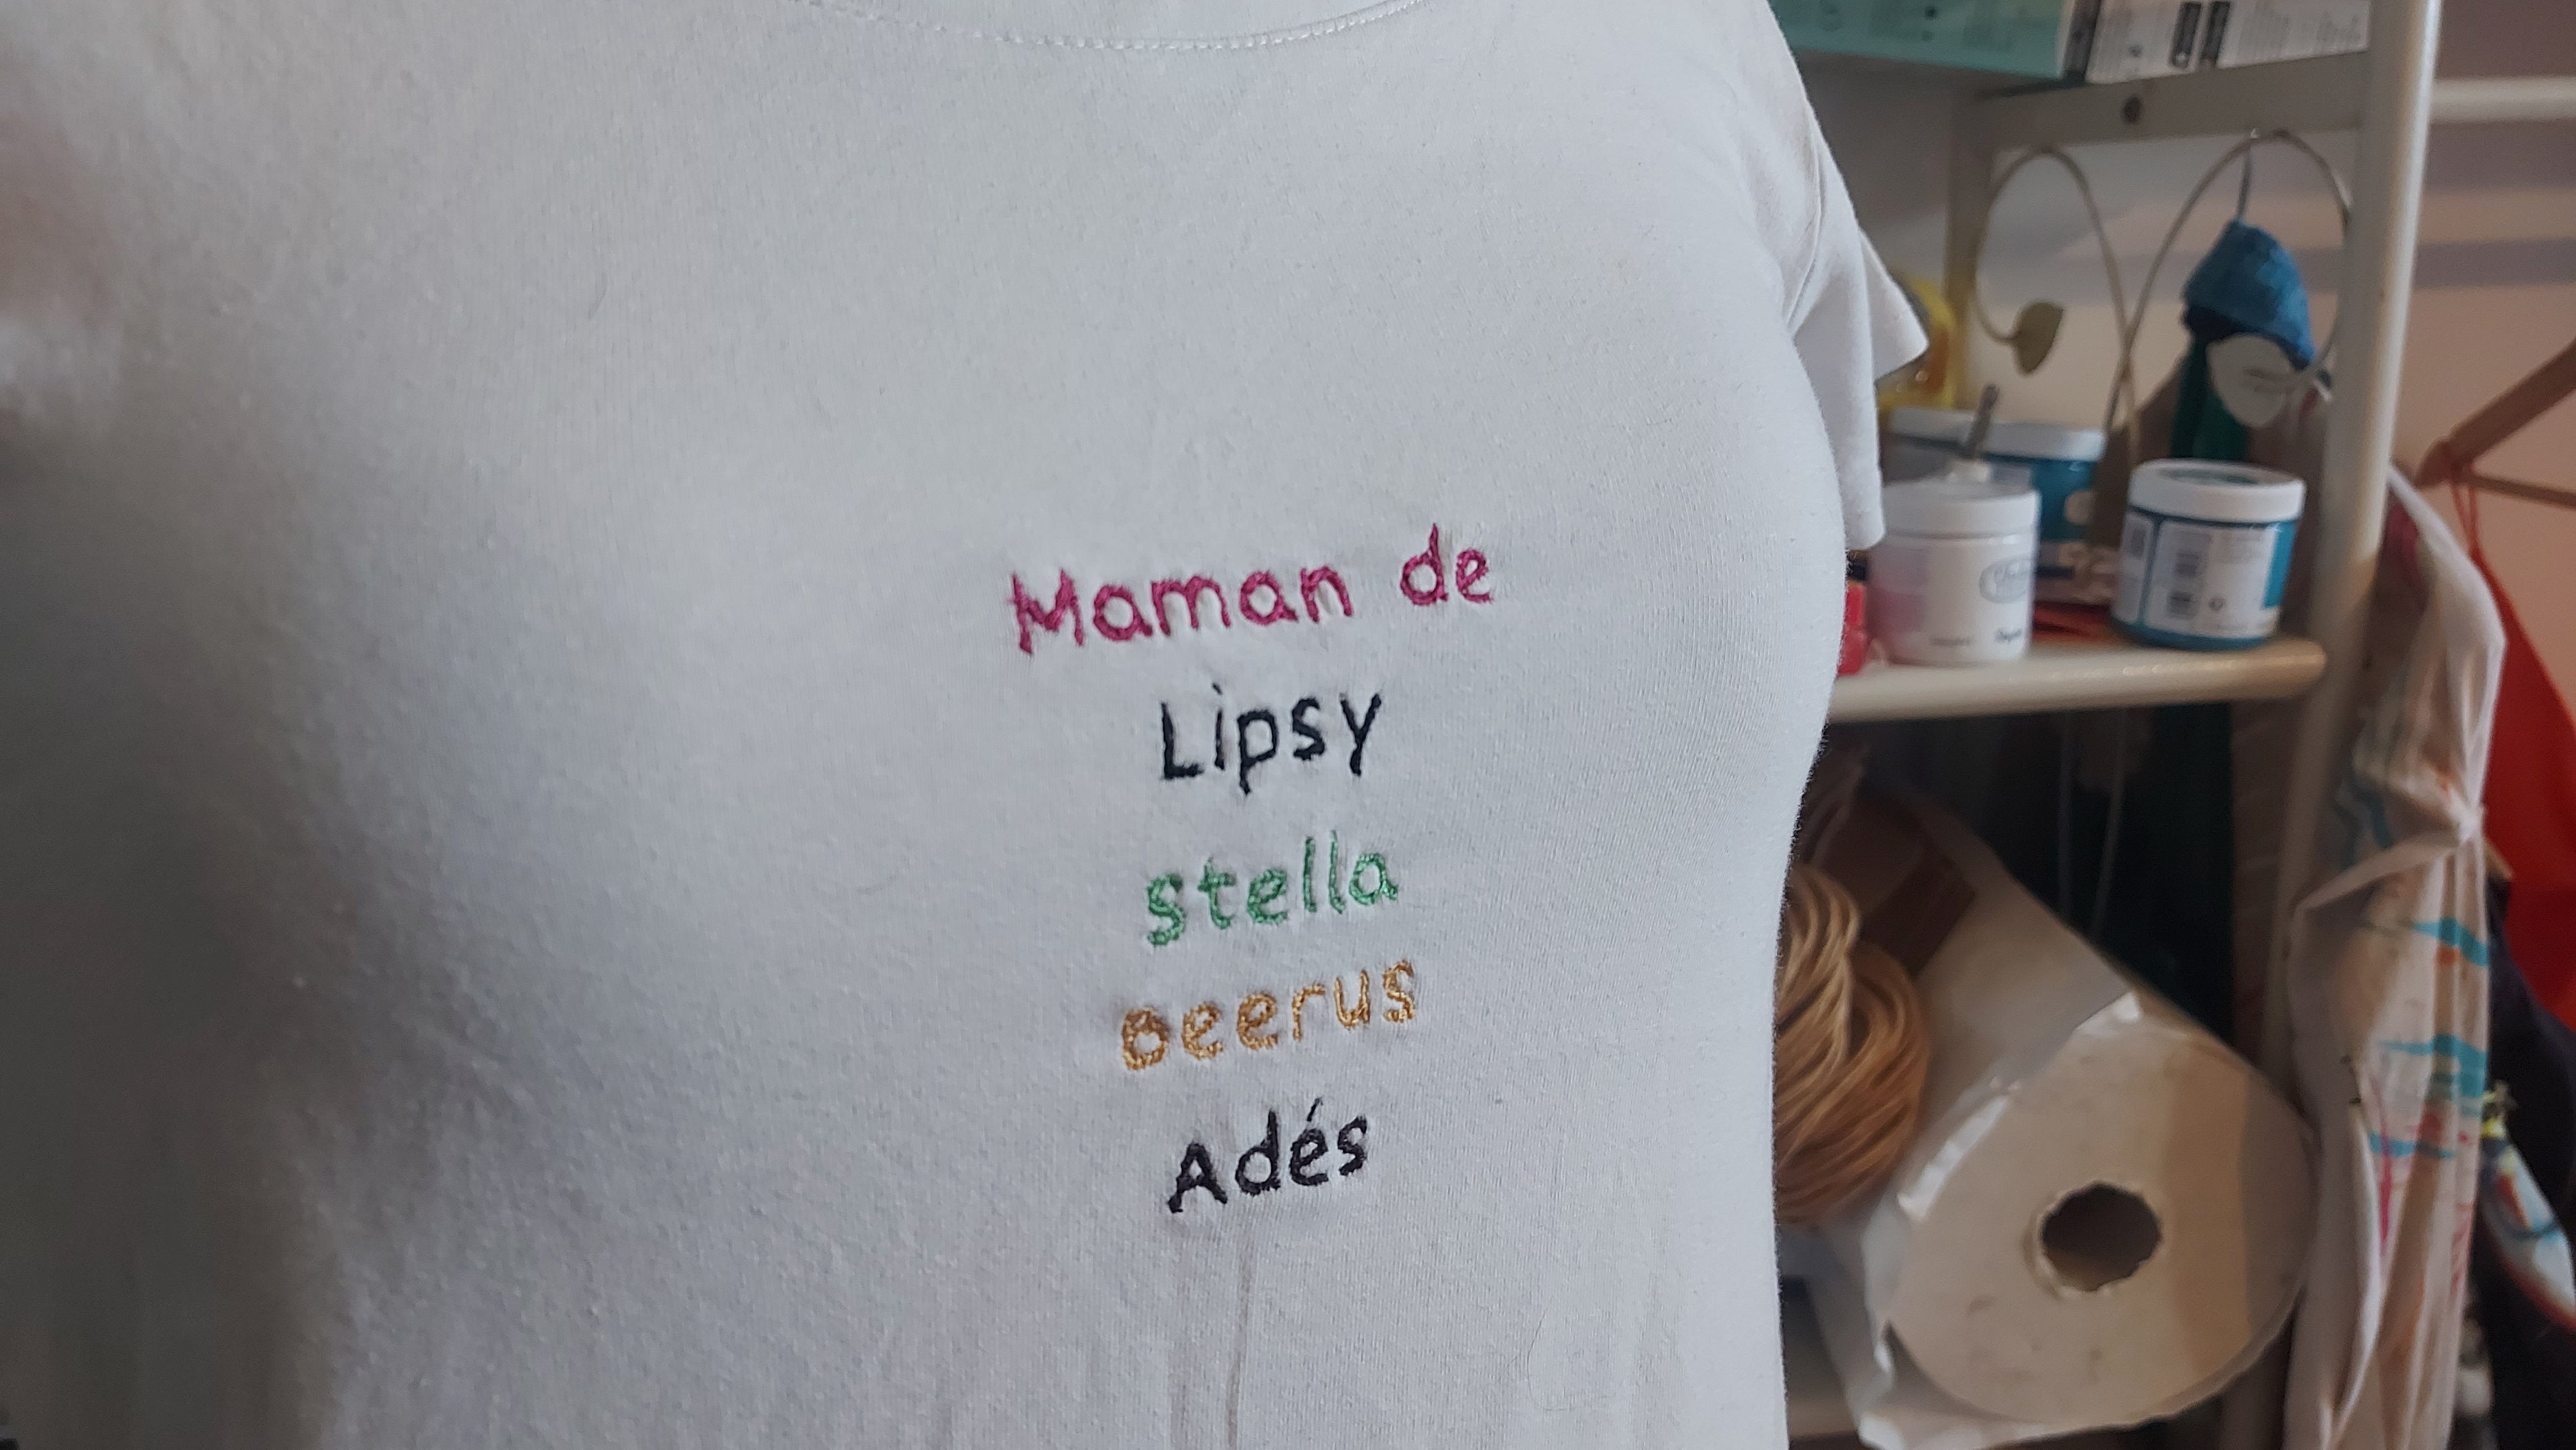 Maman de
Lipsy
stella
beerus
Adés